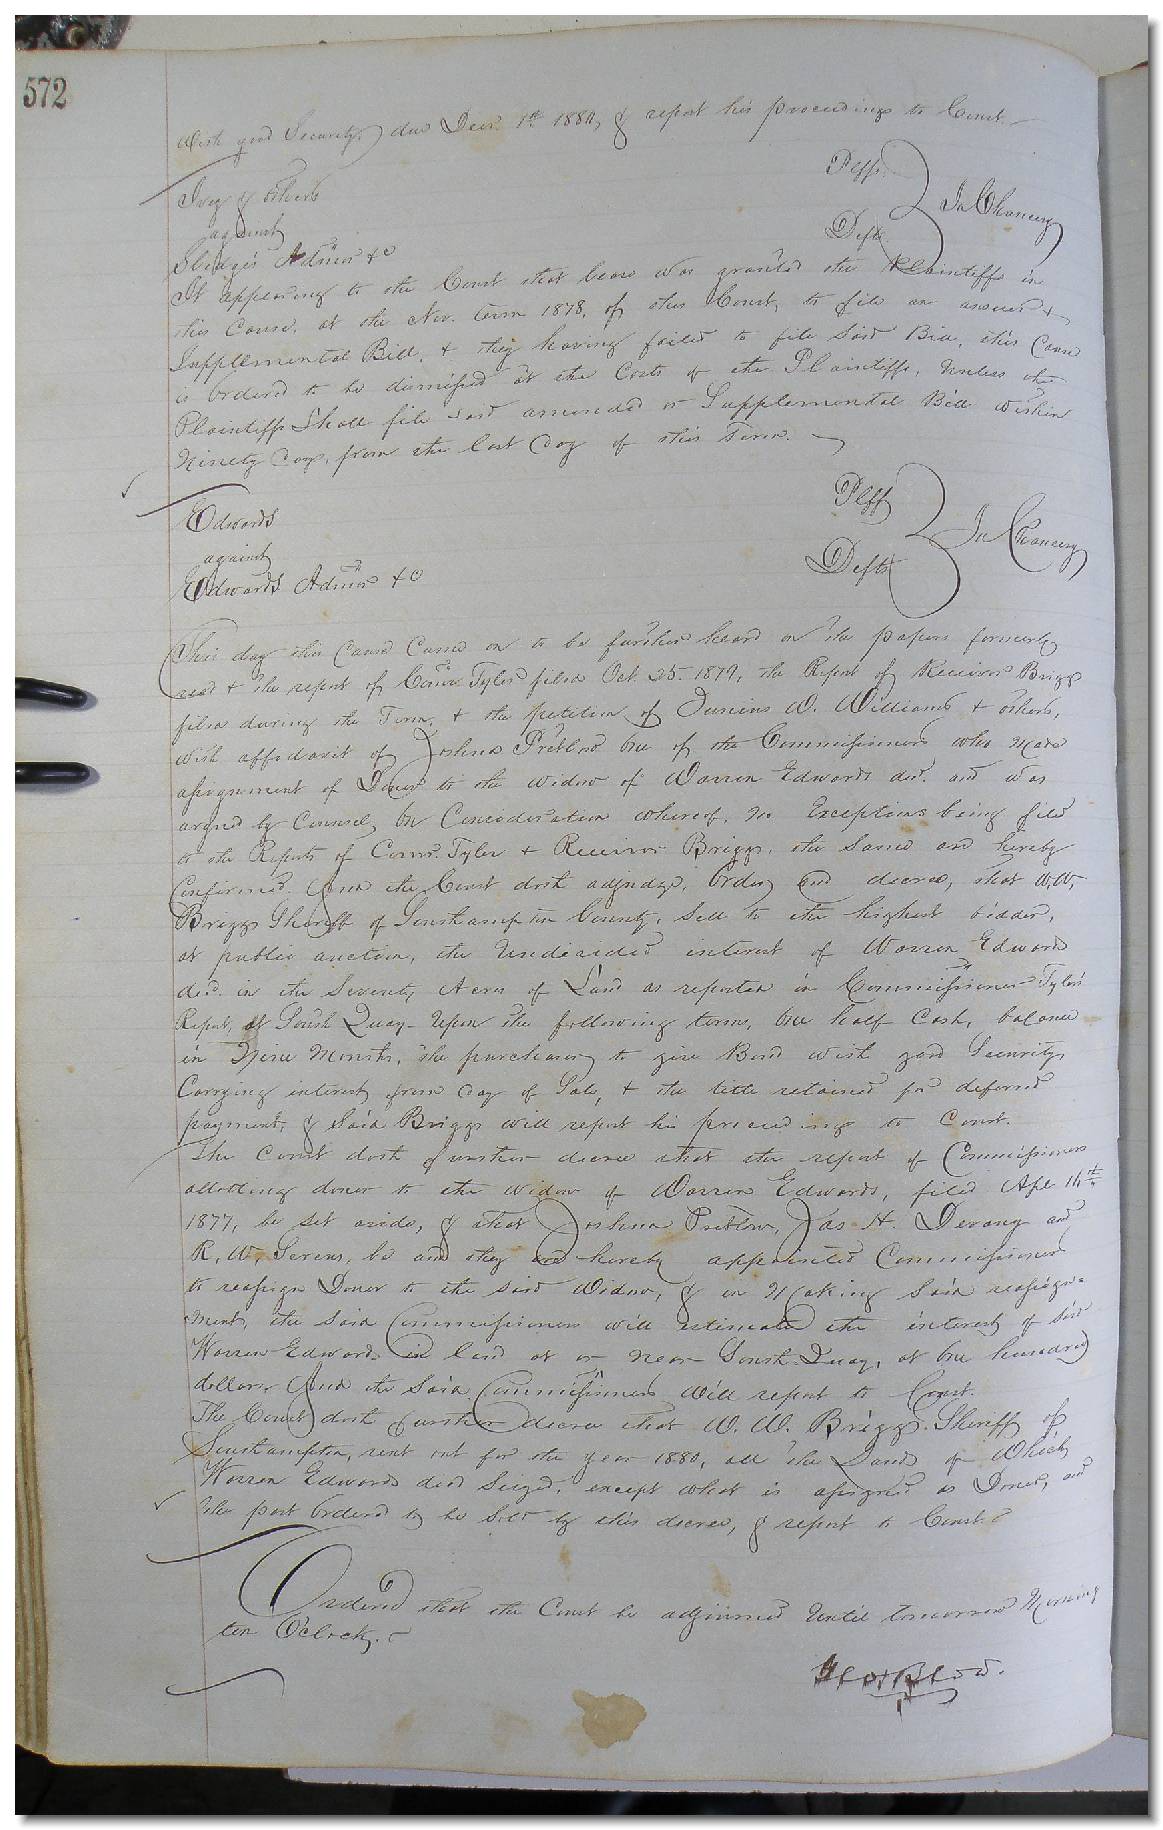 572
With good Security, due Decr. 1st 1880, & report his proceedings to Court.
Ivey & others Plffs.
against In Chancery
Sledge's Admor &c Defts
It appearing to the Court that leave was granted the Plaintiffs in
this Cause, at the Nov. term 1878, of this Court, to file an &
Supplemental Bill, & they having failed to file said Bill, this Cause
is Ordered to be dismissed at the Costs of the Plaintiffs, Unless the
Plaintiffs Shall file said amended or Supplemental Bill within
Ninety days, from the last day of this Term.
Edwards Plff
against In Chancery
Edwards Admor &c Defts
This day this Cause Came on to be further heard on the papers formerly
read & the report of Comr. Tyler filed Oct. 25. 1879, the Report of Receiver Briggs
filed during the Term, & the petition of Junius W. Williams & others,
with affidavit of Joshua Pretlow one of the Commissioners who made
assignment of Dower to the widow of Warren Edwards decd. and was
argued by Counsel, On Consideration whereof, no Exceptions being filed
to the Reports of Comr. Tyler & Receiver Briggs, the Same are hereby
Confirmed. And the Court doth adjudge, Order, and decree, that W. W.
Briggs Sheriff of Southampton County, Sell to the highest bidder,
at public auction, the Undivided interest of Warren Edwards
decd. in the Seventy Acres of Land as reported in Commissioner Tyler's
Report, at South Quay - Upon the following terms, One half Cash, balance
in Nine Months, the purchaser to give Bond with good Security
Carrying interest from day of Sale, & the title retained for deferred
payment, & Said Briggs will report his proceedings to Court.
The Court doth further decree that the report of Commissioners
allotting dower to the widow of Warren Edwards, filed Apl 16th
1877, be Set aside, & that Joshua Pretlow, Jas H. Devany and
R. W. be and they are hereby appointed Commissioners
to reassign Dower to the said Widow, & in Making Said reassign-
ment, the Said Commissioners will estimate the interest of said
Warren Edwards in land at or near South Quay, at One hundred
dollars And the Said Commissioners Will report to Court.
The Court doth further decree that W. W. Briggs Sheriff of
Southampton, rent out for the year 1880, all the Lands of Which
Warren Edwards died Seized, except what is assigned as Dower, and
the part Ordered to be Sold by this decree, & report to Court.
Ordered that the Court be adjourned Until tomorrow Morning
ten O'Clock.